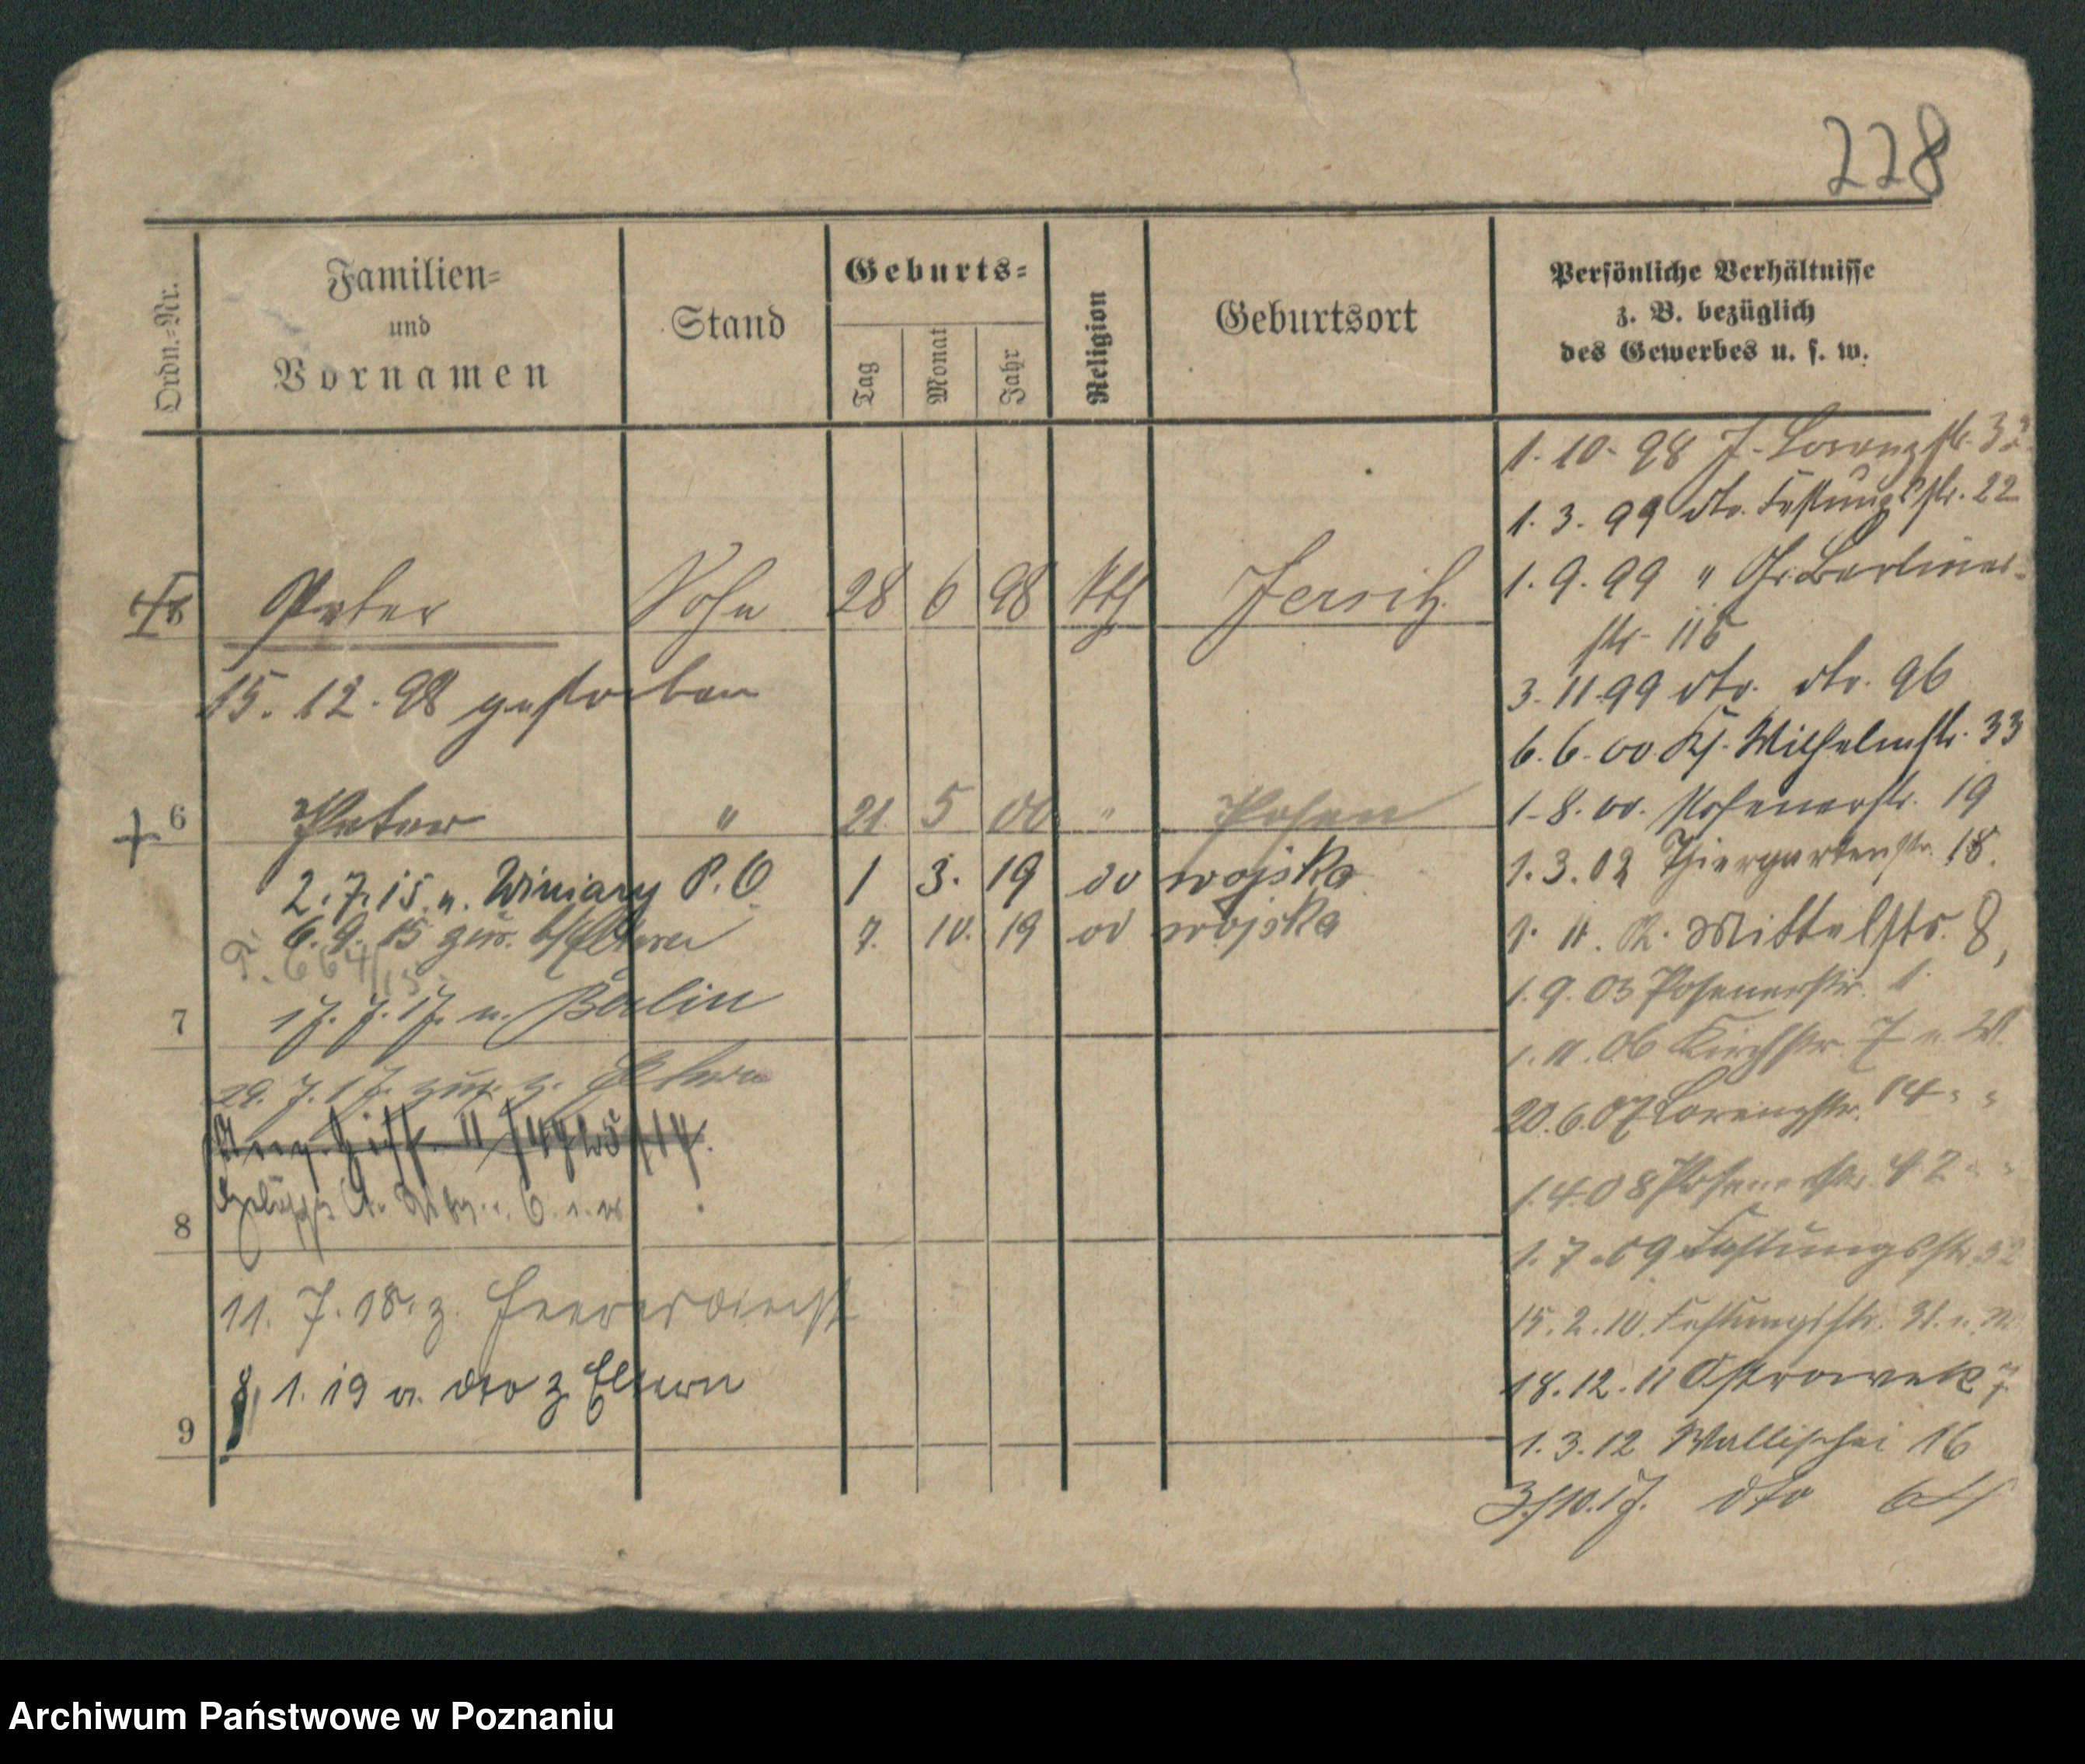 228
Ordn.-Nr.
Familien-
und
Vornamen
Stand
Geburts-
Tag
Monat
Jahr
Religion
Geburtsort
Persönliche Verhältnisse
z. B. bezüglich
des Gewerbes u. s. w.
Peter Sohn 28 6 98 kth Jersitz
15. 12. 98 gestorben
6 Peter " 21 5 00 " Posen
2. 7. 15. n. Winiary P. O. 1 3. 19 do wojska
6. 9. 15 zur. b/Eltern 7. 10. 19 do wojska
664/15
7 17. 7. 17. n. Berlin
29. 7. 17. zur. z. Eltern
8
11. 7. 18. z. Heeresdienst
8. 1. 19 v. dto z Eltern
9
1. 10. 98 J. Lorenzstr. 32
1. 3. 99 dto. Festungsstr. 22
1. 9. 99 " Gr. Berliner-
str. 115
3. 11. 99 dto. dto. 96
6. 6. 00 Kf. Wilhelmstr. 33
1. 8. 00. Posenerstr. 19
1. 3. 02 Thiergartenstr. 18.
1. 11. 02. Mittelstr. 8,
1. 9. 03 Posenerstr. 1.
1. 11. 06 Kirchstr. 7 n W.
20. 6. 07 Lorenzstr. 14 " "
1. 4. 08 Posenerstr. 42 " "
1. 7. 09 Festungsstr. 32
15. 2. 10. Festungsstr. 31.
18. 12. 11 Ostrowek 7
1. 3. 12 Wallischei 16
3/10. 17. dto
Archiwum Państwowe w Poznaniu